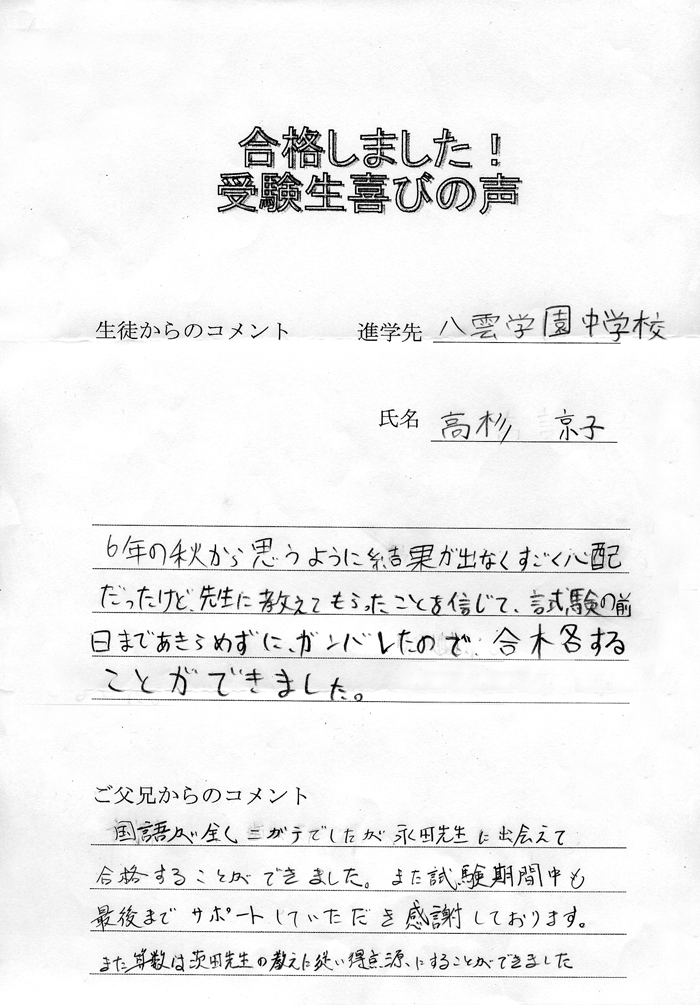 合格しました！
受験生喜びの声
生徒からのコメント 進学先 八雲学園中学校
氏名 高杉 京子
6年の秋から思うように結果が出なくすごく心配
だったけど、先生に教えてもらったことを信じて、試験の前
日まであきらめずに、ガンバレたので、合格する
ことができました。
ご父兄からのコメント
国語が全くニガテでしたが永田先生に出会えて
合格することができました。また試験期間中も
最後までサポートしていただき感謝しております。
また算数は茨田先生の教えに従い得点源にすることができました